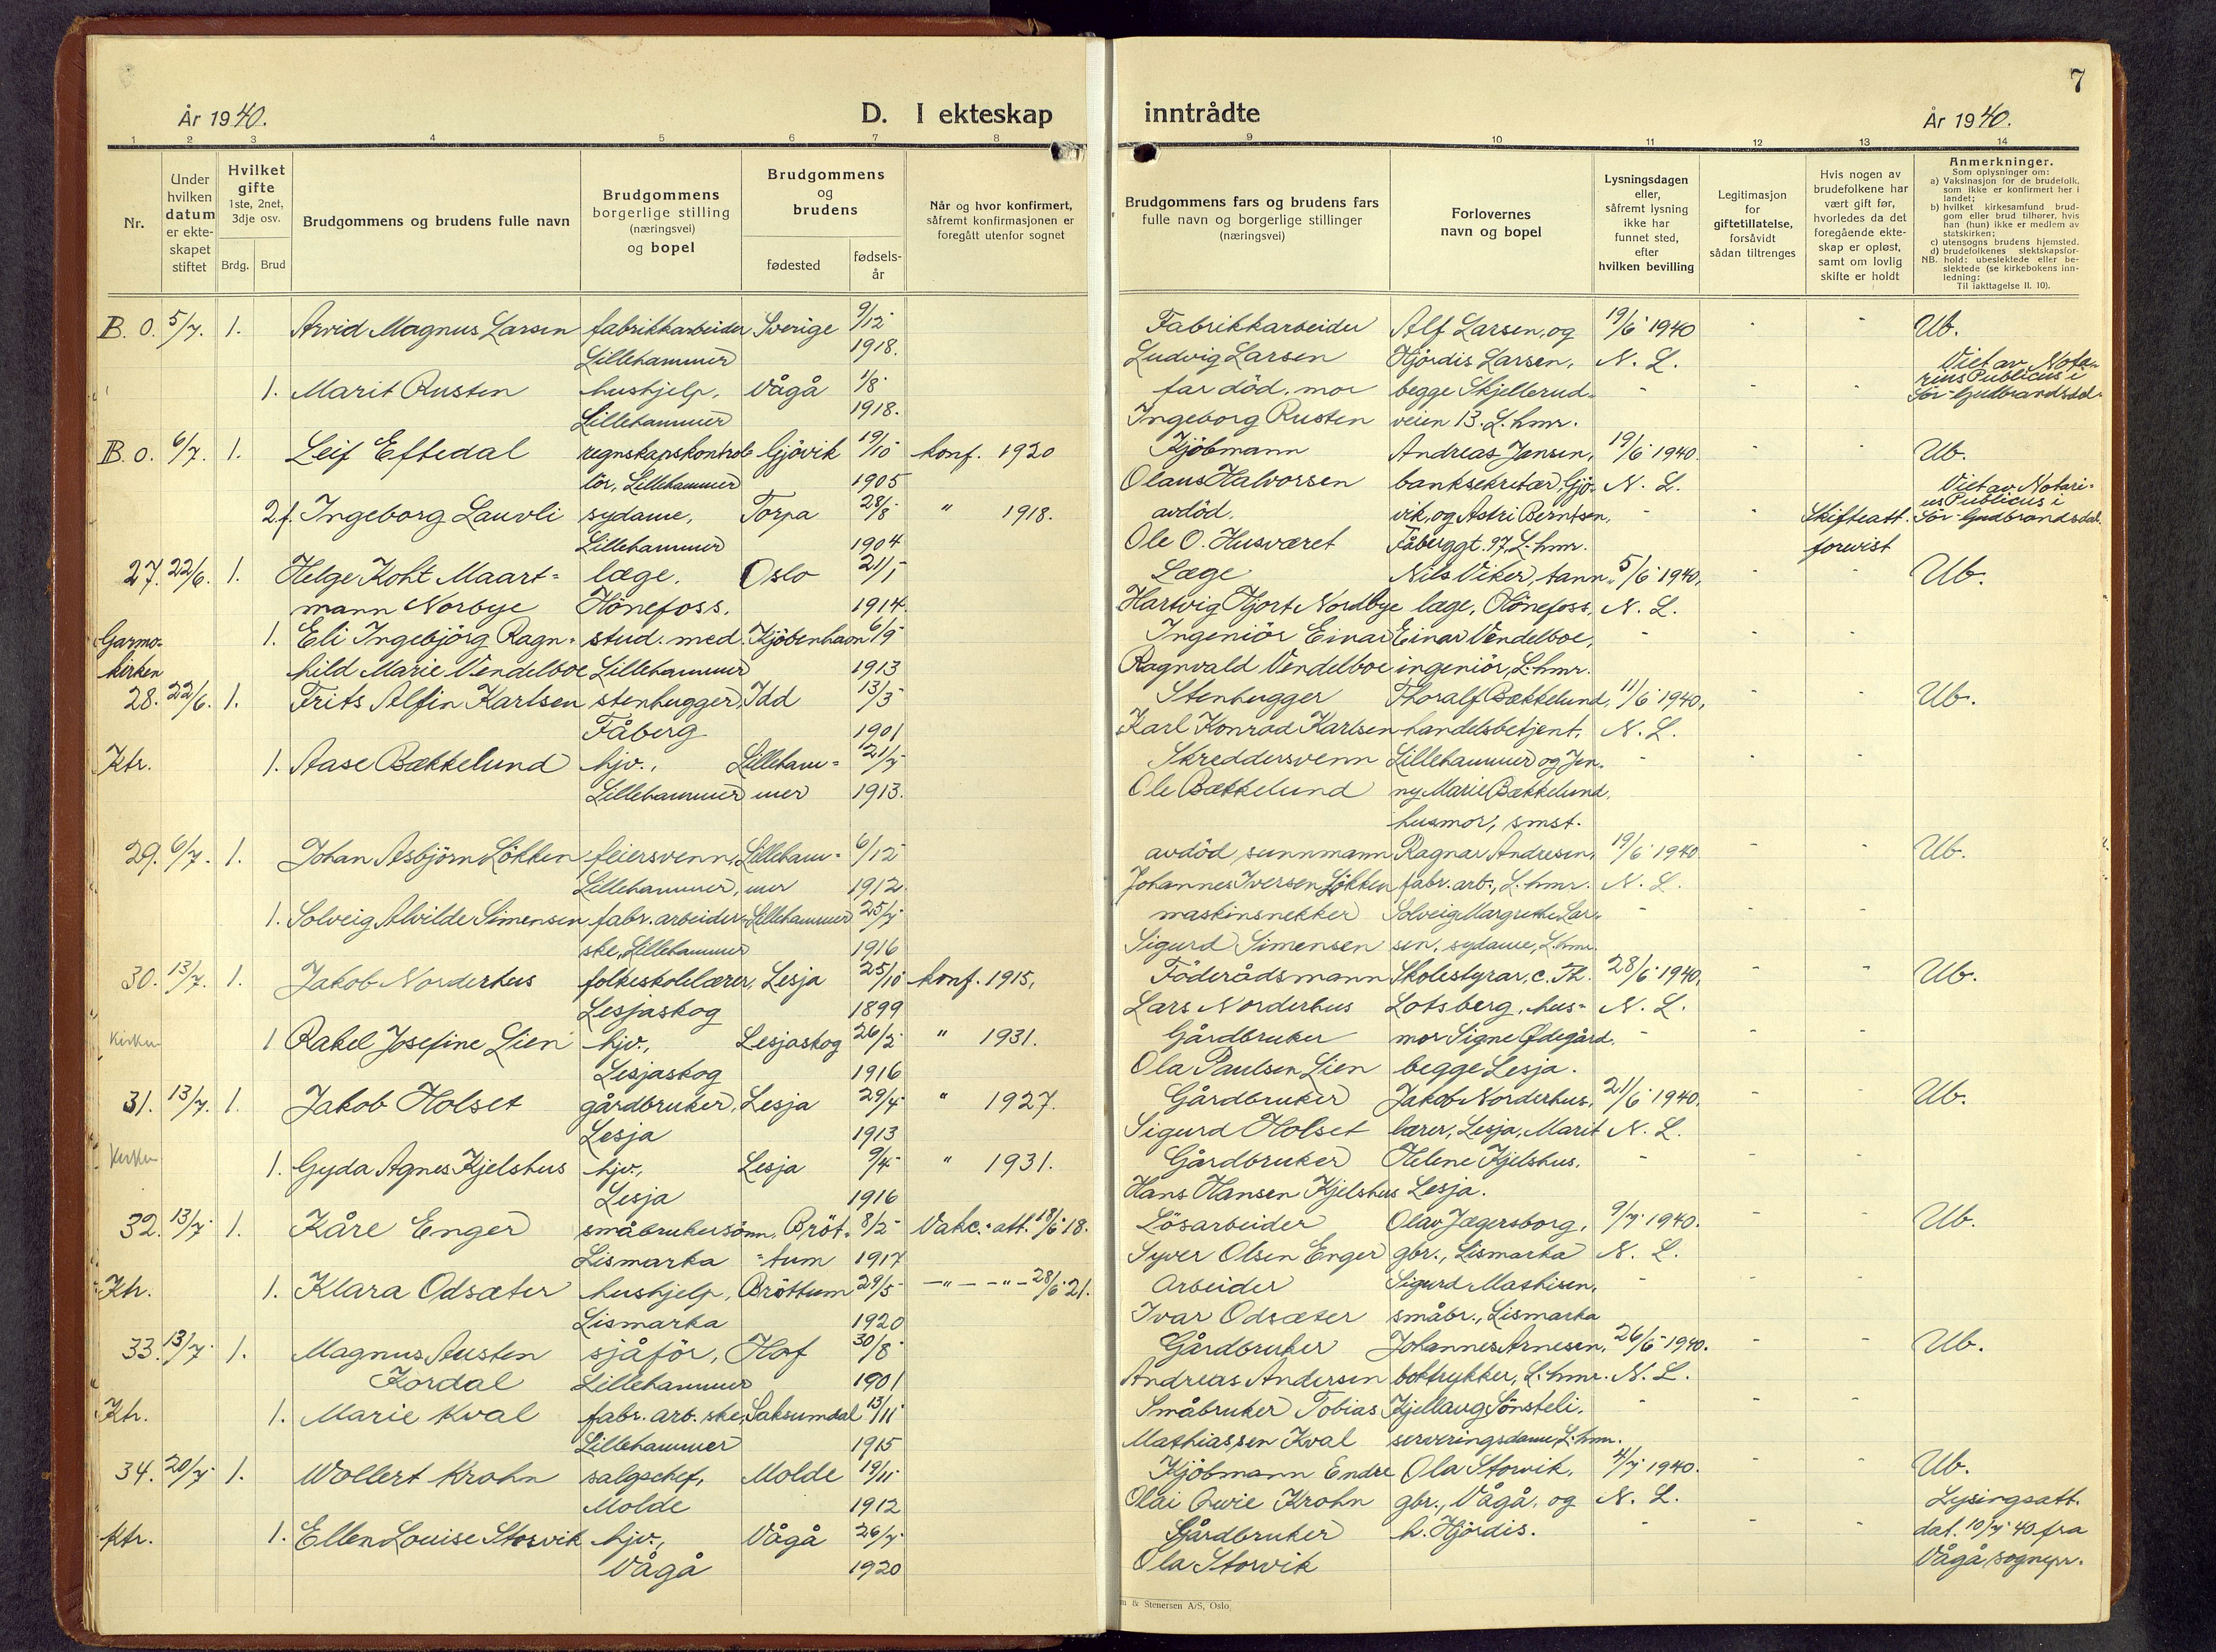 7
År 1940. D. I ekteskap inntrådte År 1940.
1 2 3 4 5 6 7 8 9 10 11 12 13 14
Nr.
Under hvilken datum er ekte-skapet stiftet
Hvilket gifte 1ste, 2net, 3dje osv.
Brdg. Brud
Brudgommens og brudens fulle navn
Brudgommens borgerlige stilling (næringsvei) og bopel
Brudgommens og brudens
fødested
fødsels-år
Når og hvor konfirmert, såfremt konfirmasjonen er foregått utenfor sognet
Brudgommens fars og brudens fars fulle navn og borgerlige stillinger (næringsvei)
Forlovernes navn og bopel
Lysningsdagen eller, såfremt lysning ikke har funnet sted, efter hvilken bevilling
Legitimasjon for giftetillatelse, forsåvidt sådan tiltrenges
Hvis nogen av brudefolkene har vært gift før, hvorledes da det foregående ekte-skap er opløst, samt om lovlig skifte er holdt
Anmerkninger.
Som oplysninger om:
a) Vaksinasjon for de brudefolk, som ikke er konfirmert her i landet;
b) hvilket kirkesamfund brud-gom eller brud tilhører, hvis han (hun) ikke er medlem av statskirken;
c) utensogns brudens hjemsted.
d) brudefolkenes slektskapsfor-hold: ubeslektede eller be-slektede (se kirkebokens inn-ledning:
NB.
Til iakttagelse II. 10).
B. O. 5/7. 1. Arvid Magnus Larsen fabrikkarbeider Sverige 9/12 Fabrikkarbeider Alf Larsen, og 19/6 1940 - - Ub.
Lillehammer 1918. Ludvig Larsen Hjördis Larsen, N. L. Viet av Nota-
1. Marit Rusten hushjelp, Vågå 1/8 far död, mor begge Skjellerud- - - - rius Publicus i
Lillehammer 1918. Ingeborg Rusten veien 13. L.hmr. Sör-Gudbrandsdal.
B. O. 6/7. 1. Leif Eftedal regnskapskontrol- Gjövik 19/10 konf. 1920 Kjöbmann Andreas Jensen, 19/6 1940. - - Ub.
lör, Lillehammer 1905 Olaus Halvorsen banksekretær, Gjö- N. L. Viet av Notari-
2.f. Ingeborg Lauvli sydame, Torpa 28/8 " 1918. avdöd. vik, og Astri Berntsen, - - Skifteatt. us Publicus i
Lillehammer 1904 Ole O. Husværet Fåberggt. 97, L.hmr. forevist Sör-Gudbrandsdal.
27. 22/6. 1. Helge Koht Maart- læge. Oslo 21/1 Læge Nils Viker, tann- 5/6 1940, - - Ub.
mann Norbye Hönefoss. 1914. Hartvig Hjort Nordbye læge, Hönefoss. N. L.
Garmo- 1. Eli Ingebjörg Ragn- stud. med. Kjöbenhavn 6/9 Ingeniör Einar Einar Vendelboe, - - -
kirken hild Marie Vendelboe Lillehammer 1913 Ragnvald Vendelboe ingeniör, L.hmr.
28. 22/6. 1. Frits Alfin Karlsen stenhugger, Idd 13/3 Stenhugger Thoralf Bækkelund, 11/6 1940, - - Ub.
Fåberg 1901 Karl Konrad Karlsen handelsbetjent, N. L.
Ktr. 1. Aase Bækkelund hjv., Lilleham- 21/7 Skreddersvenn Lillehammer og Jen- - - -
Lillehammer mer 1913. Ole Bækkelund ny Marie Bækkelund,
husmor, smst.
29. 6/7. 1. Johan Asbjörn Lökken feiersvenn, Lilleham- 6/12 avdöd sunnmann Ragnar Andresen, 19/6 1940. - - Ub.
Lillehammer, mer 1912. Johannes Iversen Lökken fabr. arb., L.hmr. N. L.
1. Solveig Alvilde Simensen fabr. arbeider- Lillehammer 25/7 maskinsnekker Solveig Margrethe Lar- - - -
ske, Lillehammer 1916 Sigurd Simensen sen, sydame, L.hmr.
30. 13/7. 1. Jakob Norderhus folkeskolelærer, Lesja 25/10 konf. 1915, Föderådsmann Skolestyrar, C. Th. 28/6 1940, - - Ub.
Lesjaskog 1899 Lars Norderhus Lotsberg, hus- N. L.
Kirken 1 Rakel Josefine Lien hjv., Lesjaskog 26/2 " 1931. Gårdbruker mor Signe Ødegård, - - -
Lesjaskog 1916 Ola Paulsen Lien begge Lesja.
31. 13/7. 1. Jakob Holset gårdbruker, Lesja 29/4 " 1927. Gårdbruker Jakob Norderhus, 21/6 1940. - - Ub.
Lesja 1913 Sigurd Holset lærer, Lesja, Marit N. L.
Kirken 1. Gyda Agnes Kjelshus hjv., Lesja 9/4 " 1931. Gårdbruker Helene Kjelshus, - - -
Lesja 1916 Hans Hansen Kjelshus Lesja.
32. 13/7. 1. Kåre Enger småbrukersönn, Bröt- 8/2 Vakc.-att. 18/6 18. Lösarbeider Olav Jægersborg, 9/7 1940. - - Ub.
Lismarka -tum 1917 Syver Olsen Enger gbr., Lismarka N. L.
Ktr. 1. Klara Odsæter hushjelp, Bröttum 29/5 -"- -"- 28/6 21. Arbeider Sigurd Mathisen, - - -
Lismarka 1920 Ivar Odsæter småbr., Lismarka
33. 13/7. 1. Magnus Austen sjåför, Hof 30/8 Gårdbruker Johannes Arnesen, 26/6 1940. - - Ub.
Kordal Lillehammer 1901 Andreas Andersen boktrykker, L.hmr. N. L.
Ktr. 1. Marie Kval fabr. arb. ske, Saksumdal 13/11 Småbruker Tobias Kjellaug Sönsteli, - - -
Lillehammer 1915 Mathiassen Kval serveringsdame, L.hmr.
34. 20/7. 1. Wollert Krohn salgschef, Molde 19/11 Kjöbmann Endre Ola Storvik, 4/7 1940. - - Ub.
Molde 1912 Olai Owie Krohn gbr., Vågå, og N. L. Lysingsatt.
Ktr. 1. Ellen Louise Storvik hjv., Vågå 26/7 Gårdbruker h. Hjördis. - - - dat. 10/7 40 fra
Vågå 1920 Ola Storvik Vågå sognepr.
& Stenersen A/S, Oslo.